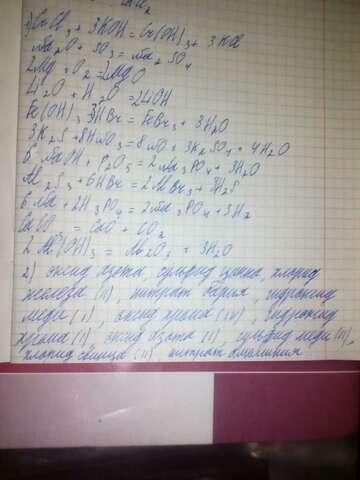 CrCl₃ + 3KOH = Cr(OH)₃ + 3KCl
Na₂O + SO₃ = Na₂SO₄
2Mg + O₂ = 2MgO
Li₂O + H₂O = 2LiOH
Fe(OH)₃ 3HBr = FeBr₃ + 3H₂O
3K₂S + 8HNO₃ = 8NO + 3K₂SO₄ + 4H₂O
6 NaOH + P₂O₅ = 2Na₃PO₄ + 3H₂O
Al₂S₃ + 6HBr = 2AlBr₃ + 3H₂S
6Na + 2H₃PO₄ = 2Na₃PO₄ + 3H₂
CaCO₃ = CaO + CO₂
2Al(OH)₃ = Al₂O₃ + 3H₂O
2) оксид азота, сульфид цинка, хлорид
железа (II), нитрат бария, гидроксид
меди (I), оксид хрома (IV), гидроксид
хрома (I), оксид азота (I), сульфид меди (II),
хлорид свинца (II), нитрат алюминия